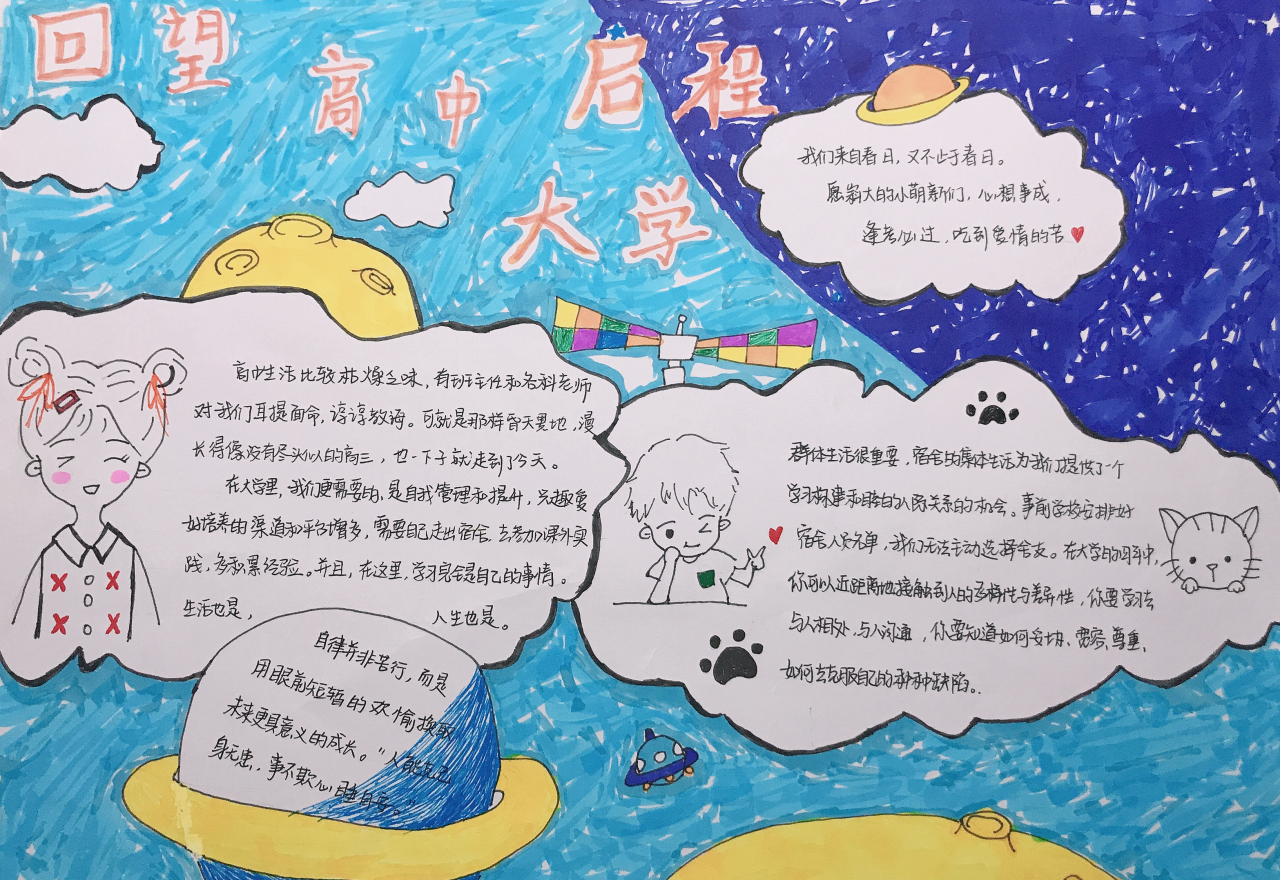 回望
高中
启程
大学
我们来自春日，又不止于春日。
愿大的小萌新们，心想事成，
逢考必过，吃到爱情的苦
高中生活比较枯燥乏味，有班主任和各科老师
对我们耳提面命，谆谆教诲。可就是那样昏天黑地，漫
长得像没有尽头似的高三，也一下子就走到了今天。
在大学里，我们更需要的，是自我管理和提升，兴趣爱
好培养的渠道和平台增多，需要自己走出宿舍，去参加课外实
践，多积累经验。并且，在这里，学习完全是自己的事情。
生活也是，人生也是。
群体生活很重要，宿舍的集体生活为我们提供了一个
学习构建和睦的人际关系的机会。事前学校安排好
宿舍人员名单，我们无法主动选择舍友。在大学的四年中，
你可以近距离地接触到人的多样性与差异性，你要学习去
与人相处，与人沟通，你要知道如何妥协、宽容、尊重，
如何去克服自己的种种缺陷。
自律并非苦行，而是
用眼前短暂的欢愉换取
未来更具意义的成长。“人能克己
身无患，事不欺心睡自安。”